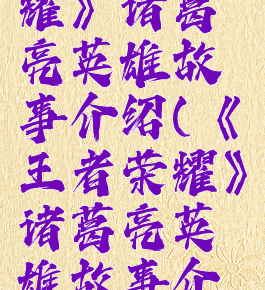 耀》诸葛
亮英雄故
事介绍(《
王者荣耀》
诸葛亮英
雄故事介